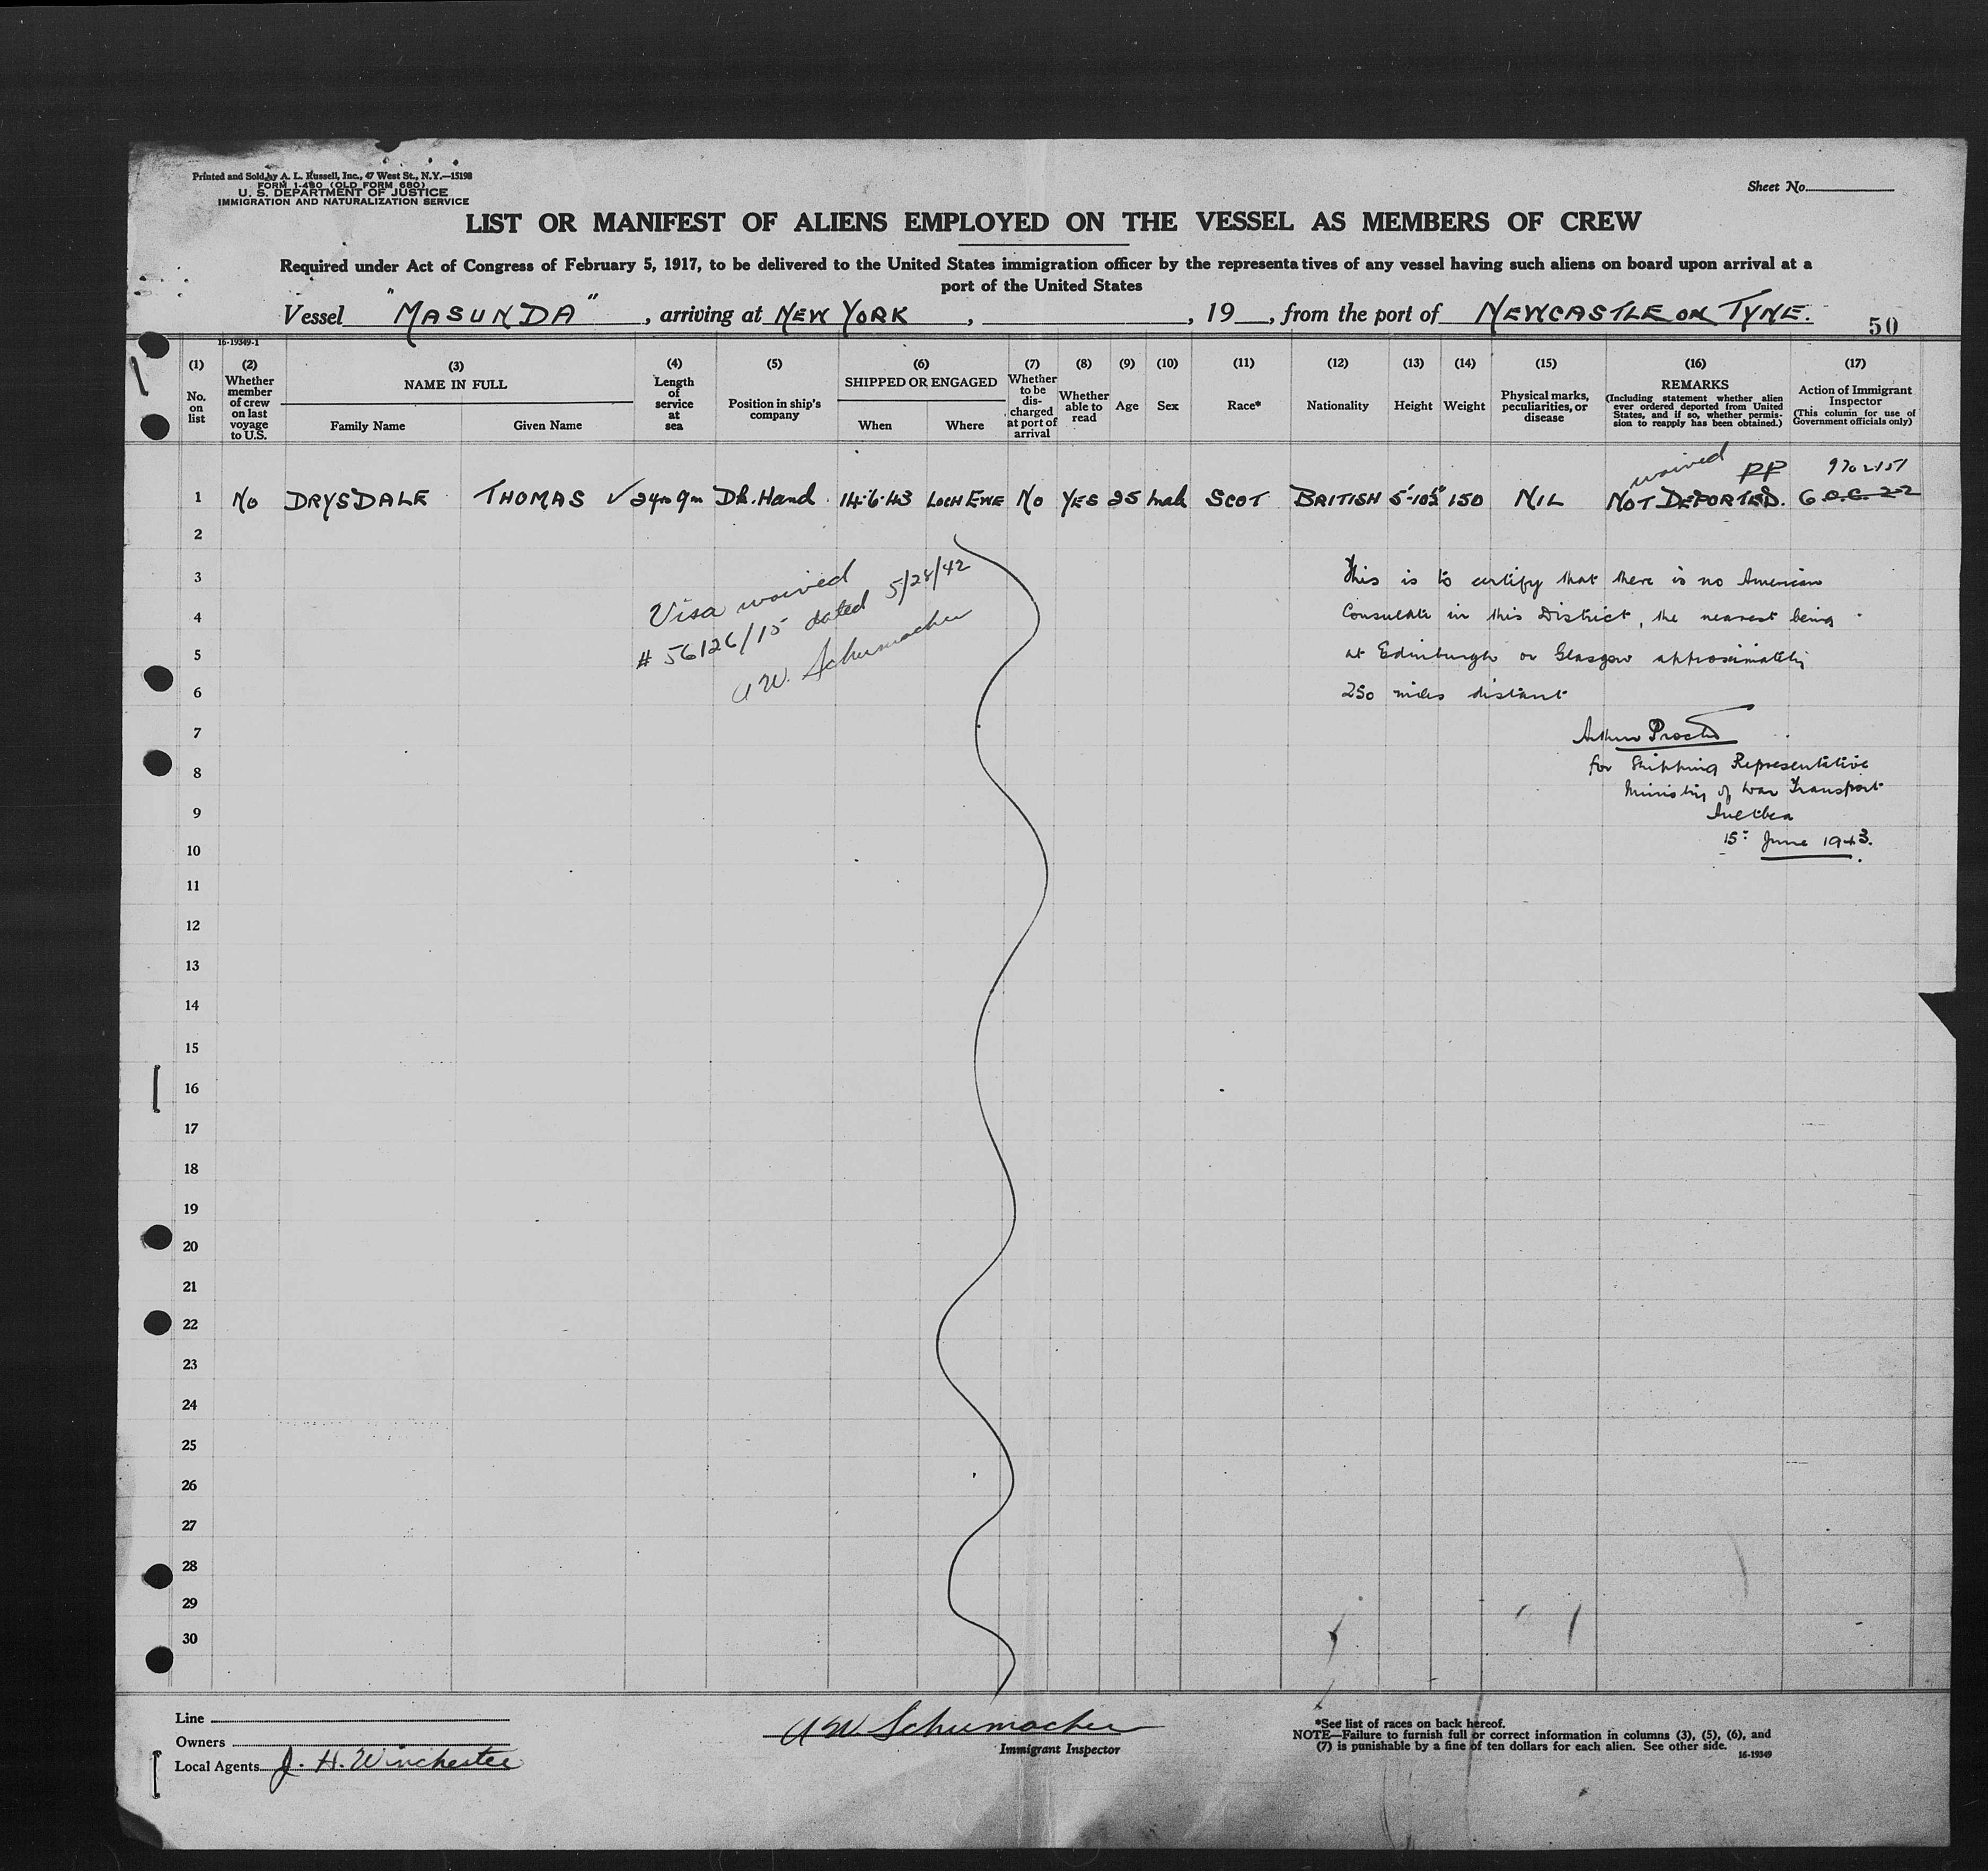 Printed and Sold by A. L. Russell, Inc., 47 West St., N.Y.—15198
FORM I-480 (OLD FORM 680)
U. S. DEPARTMENT OF JUSTICE
IMMIGRATION AND NATURALIZATION SERVICE
Sheet No.
LIST OR MANIFEST OF ALIENS EMPLOYED ON THE VESSEL AS MEMBERS OF CREW
Required under Act of Congress of February 5, 1917, to be delivered to the United States immigration officer by the representatives of any vessel having such aliens on board upon arrival at a
port of the United States
Vessel "MASUNDA", arriving at NEW YORK, , 19 , from the port of NEWCASTLE ON TYNE.
50
16-19349-1
(1) No. on list
(2) Whether member of crew on last voyage to U.S.
(3) NAME IN FULL
Family Name Given Name
(4) Length of service at sea
(5) Position in ship's company
(6) SHIPPED OR ENGAGED
When Where
(7) Whether to be discharged at port of arrival
(8) Whether able to read
(9) Age
(10) Sex
(11) Race*
(12) Nationality
(13) Height
(14) Weight
(15) Physical marks, peculiarities, or disease
(16) REMARKS
(Including statement whether alien ever ordered deported from United States, and if so, whether permission to reapply has been obtained.)
(17) Action of Immigrant Inspector
(This column for use of Government officials only)
waived PP
1 No DRYSDALE THOMAS ✓ 2yrs 9m Dk. Hand 14·6·43 LOCH EWE No YES 25 Male SCOT BRITISH 5'-10½" 150 NIL NOT DEPORTED.
2
3
4
5
6
7
8
9
10
11
12
13
14
15
16
17
18
19
20
21
22
23
24
25
26
27
28
29
30
Visa waived
# 56126/15 dated 5/28/42
A W. Schumacher
This is to certify that there is no American
Consulate in this District, the nearest being
at Edinburgh or Glasgow approximately
250 miles distant
Arthur Procter
for Shipping Representative
Ministry of War Transport
15: June 1943.
Line
Owners
Local Agents J. H. Winchester
A W Schumacher
Immigrant Inspector
*See list of races on back hereof.
NOTE—Failure to furnish full or correct information in columns (3), (5), (6), and
(7) is punishable by a fine of ten dollars for each alien. See other side.
16-19349